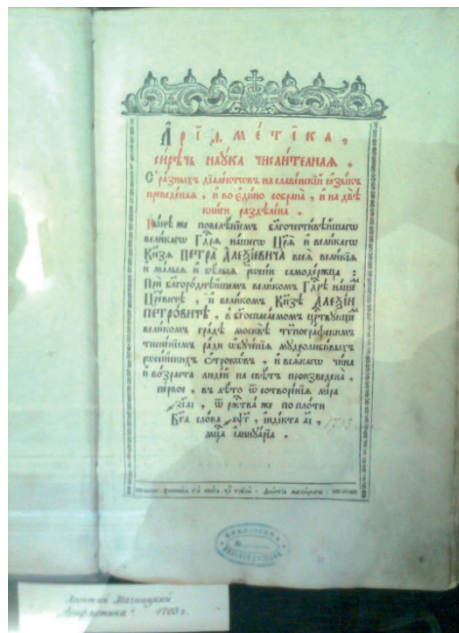 Арїѳме́тїка,
си́рѣчь нау́ка числи́телная.
С̾ ра́зныхъ дїале́ктовъ на славе́нскїй ꙗ҆зы́къ
преведе́ная, и҆ во є҆ди́но собрана̀, и҆ на двѣ̀
кни́ги раздѣле́на.
Ны́нѣ же повелѣ́нїемъ бл҃гочести́вѣйшагѡ
вели́кагѡ Гдⷭ҇ря на́шегѡ Цр҃ѧ̀ и҆ вели́кагѡ
Кн҃зѧ ПЕТРА̀ АЛЕѮІ́ЕВИЧА всеѧ̀ вели́кїѧ
и҆ ма́лыѧ и҆ бѣ́лыѧ рѡссі́и самоде́ржца:
Прѝ бл҃горо́днѣйшемъ вели́комъ Гдⷭ҇рѣ на́шемъ
Цр҃е́вичѣ, и҆ вели́комъ Кн҃зѣ АЛЕѮІ́И
ПЕТРО́ВИЧѢ, в̾ бг҃оспаса́емомъ црⷭ҇твꙋющемъ
вели́комъ гра́дѣ москвѣ̀ тѷпогра́фскимъ
тисне́нїемъ ра́ди ѡ҆бꙋче́нїѧ мꙋдролюби́выхъ
рѡссі́йскихъ ѻ҆трокѡ́въ, и҆ всѧ́кагѡ чи́на
и҆ во́зраста люде́й на свѣ́тъ произведена̀,
пе́рвое, въ лѣ́то ѿ сотворе́нїѧ мі́ра
҂зс҃аі, ѿ ржⷭ҇тва̀ же по пло́ти
Бг҃а сло́ва ҂аѱ҃г, і҆нді́кта а҃і,
мцⷭ҇а і҆аннꙋа́рїа.
1703
Леонтий Магницкий
Арифметика 1703 г.